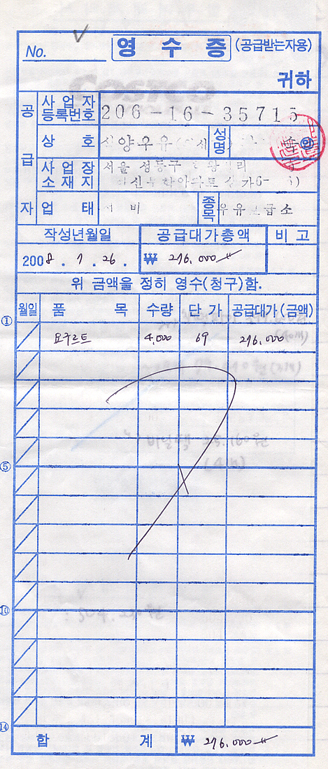 No.
영 수 증 (공급받는자용)
귀하
공 급 자
사 업 자 등록번호 206-16-35715
상 호 양우유 성명
사 업 장 소 재 지 서울 성동구
업 태 비 종목 우유보급소
작성년월일 공급대가총액 비 고
2008. 1. 26. ₩ 276,000
위 금액을 정히 영수(청구)함.
월일 품 목 수량 단 가 공급대가 (금액)
① 요구르트 4,000 69 276,000
⑤
⑩
⑭
합 계 ₩ 276,000